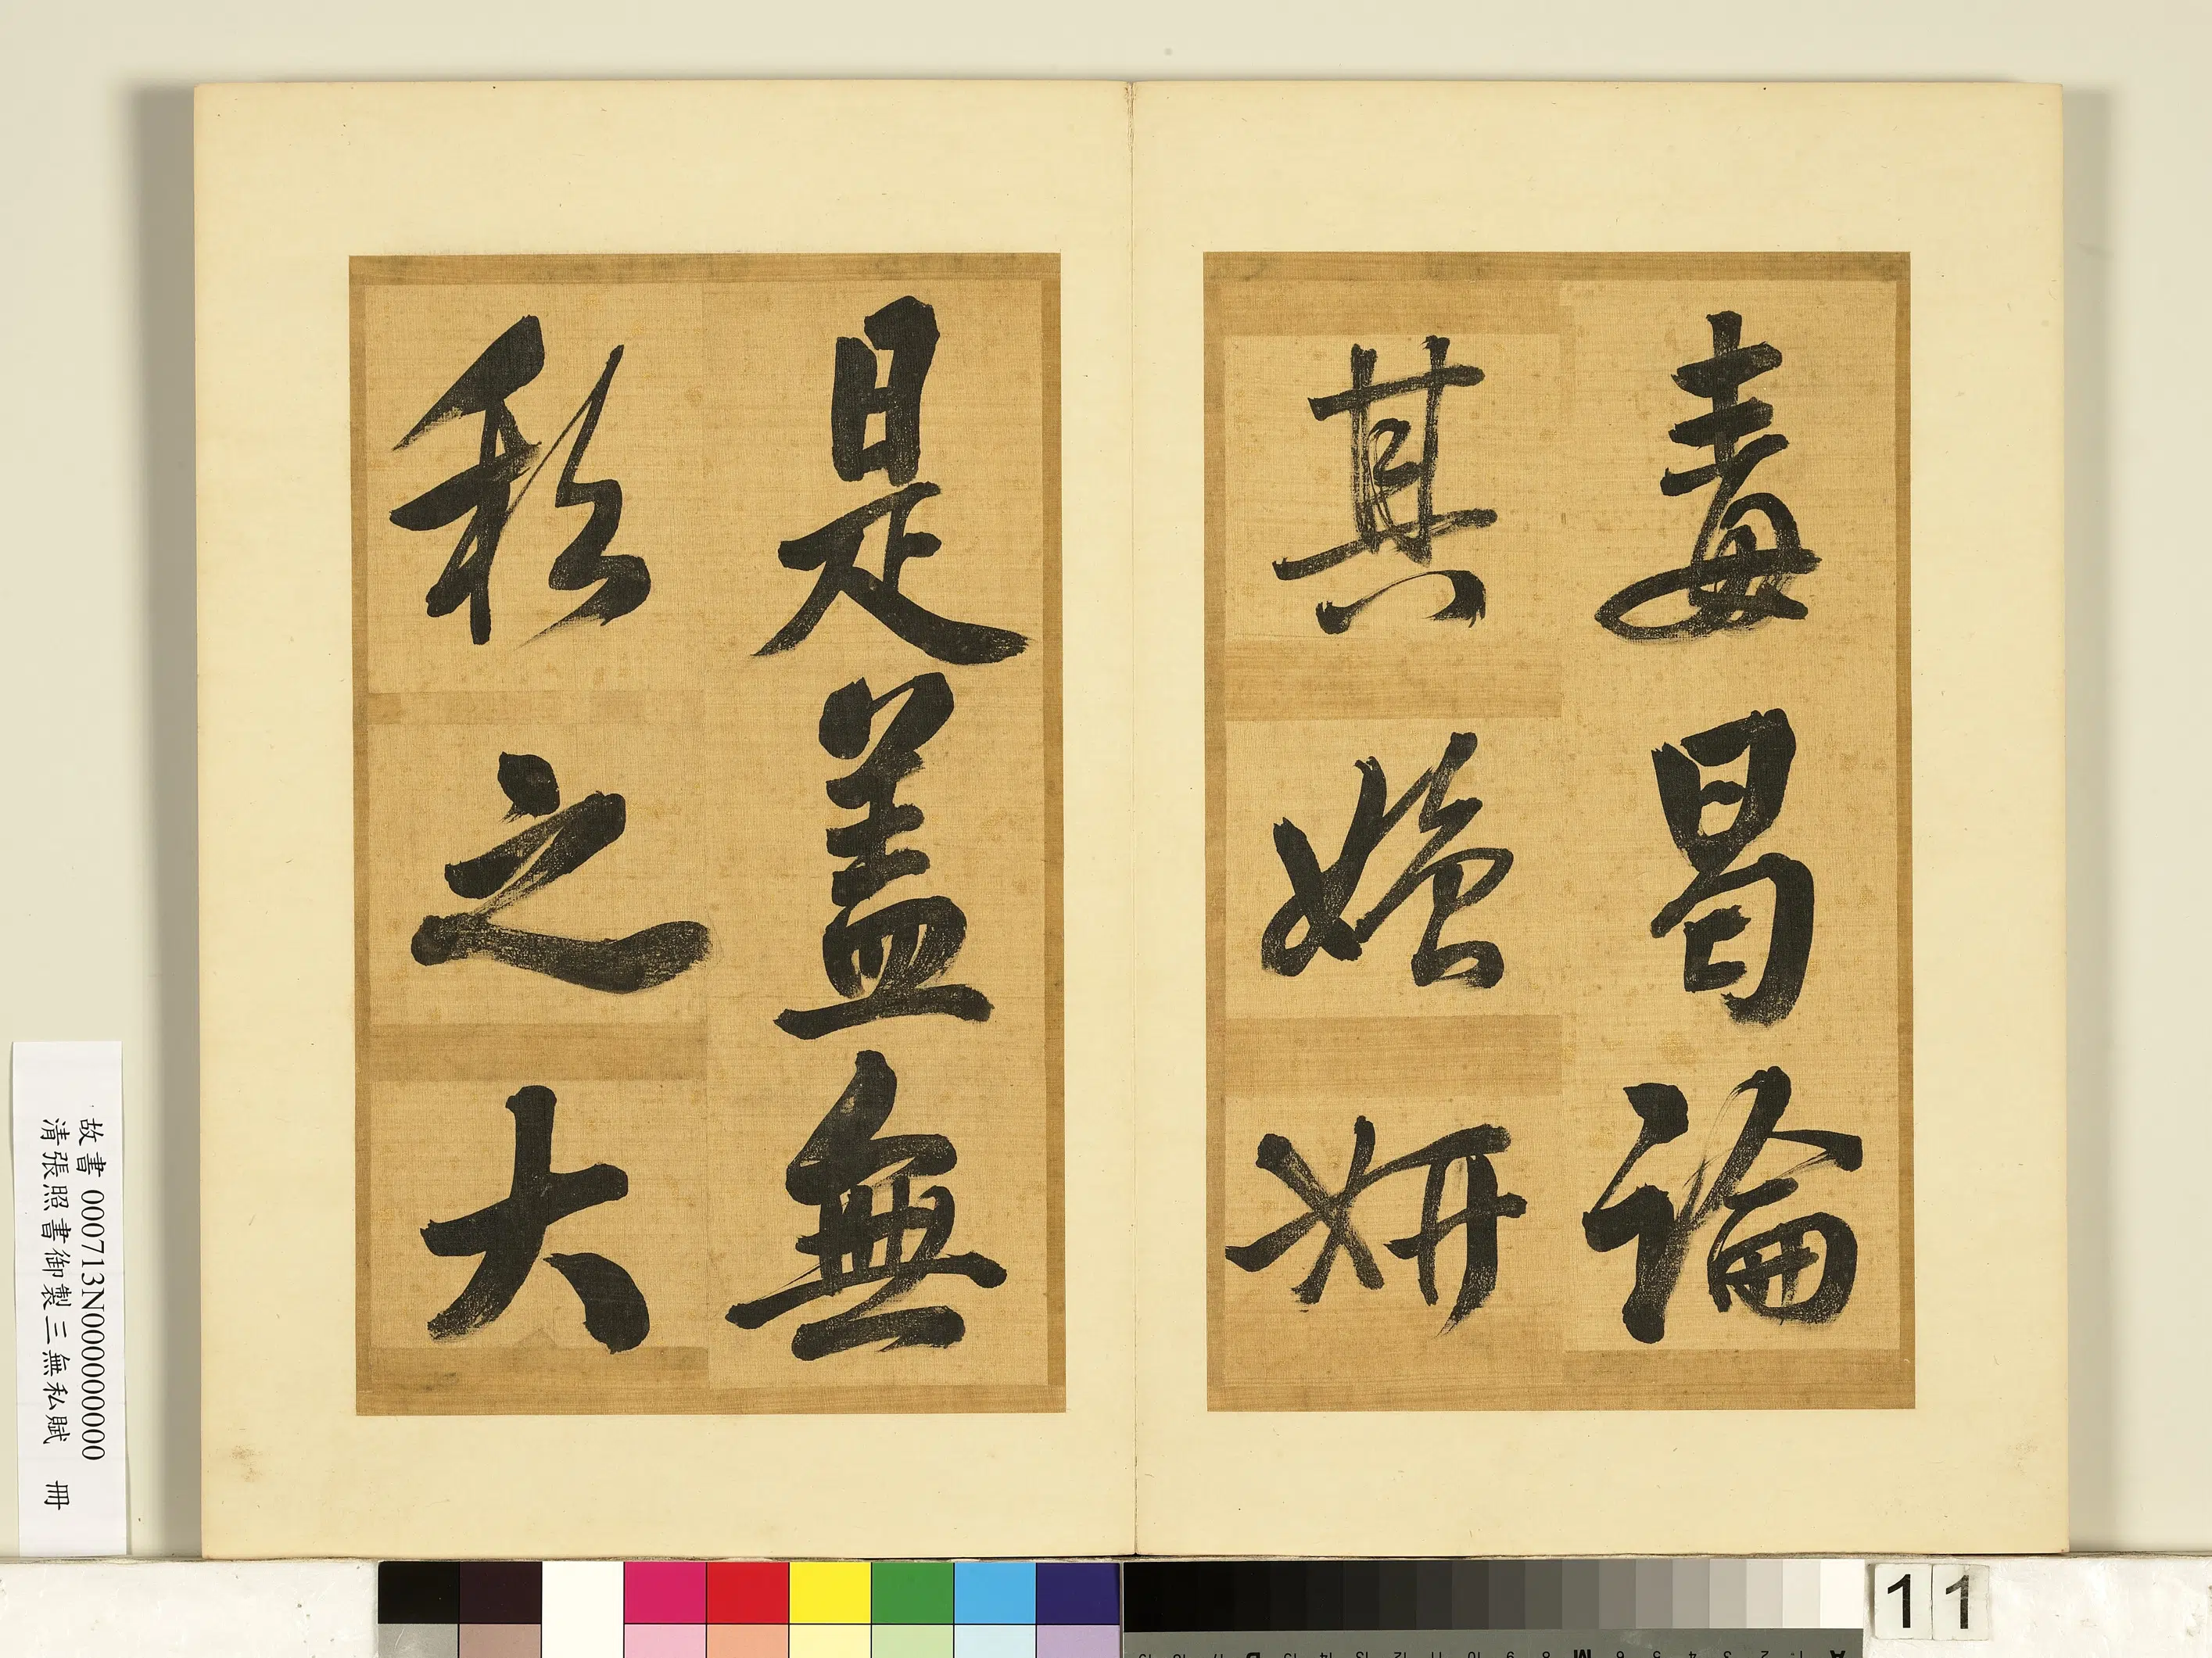 毒曷論
其媸妍
是蓋無
私之大
故書 000713N000000000
清張照書御製三無私賦 冊
11